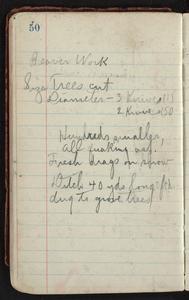 50
Beaver Work
Size Trees cut
Diameter - 3 Knives 11
2 Knives 50
Hundreds smaller,
All
Fresh drags on snow
Ditch 40 yds long
dug to grove trees